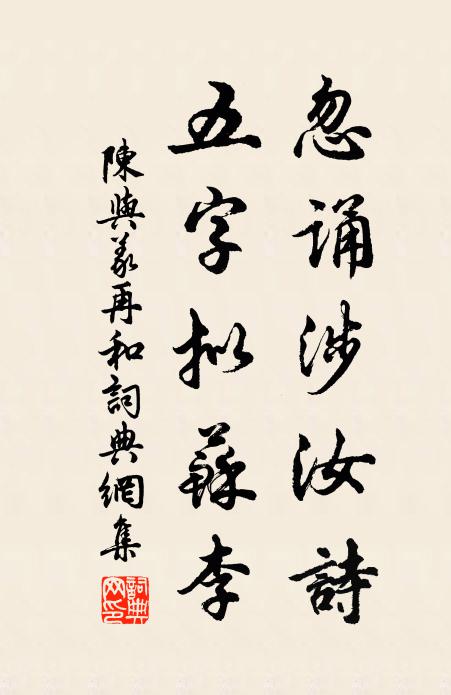 忽誦涉汝詩
五字拟蘇李
陳與義再和詞典網集
詞典网印